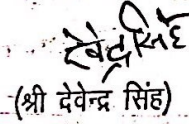 देवेन्द्रसिंह
(श्री देवेन्द्र सिंह)